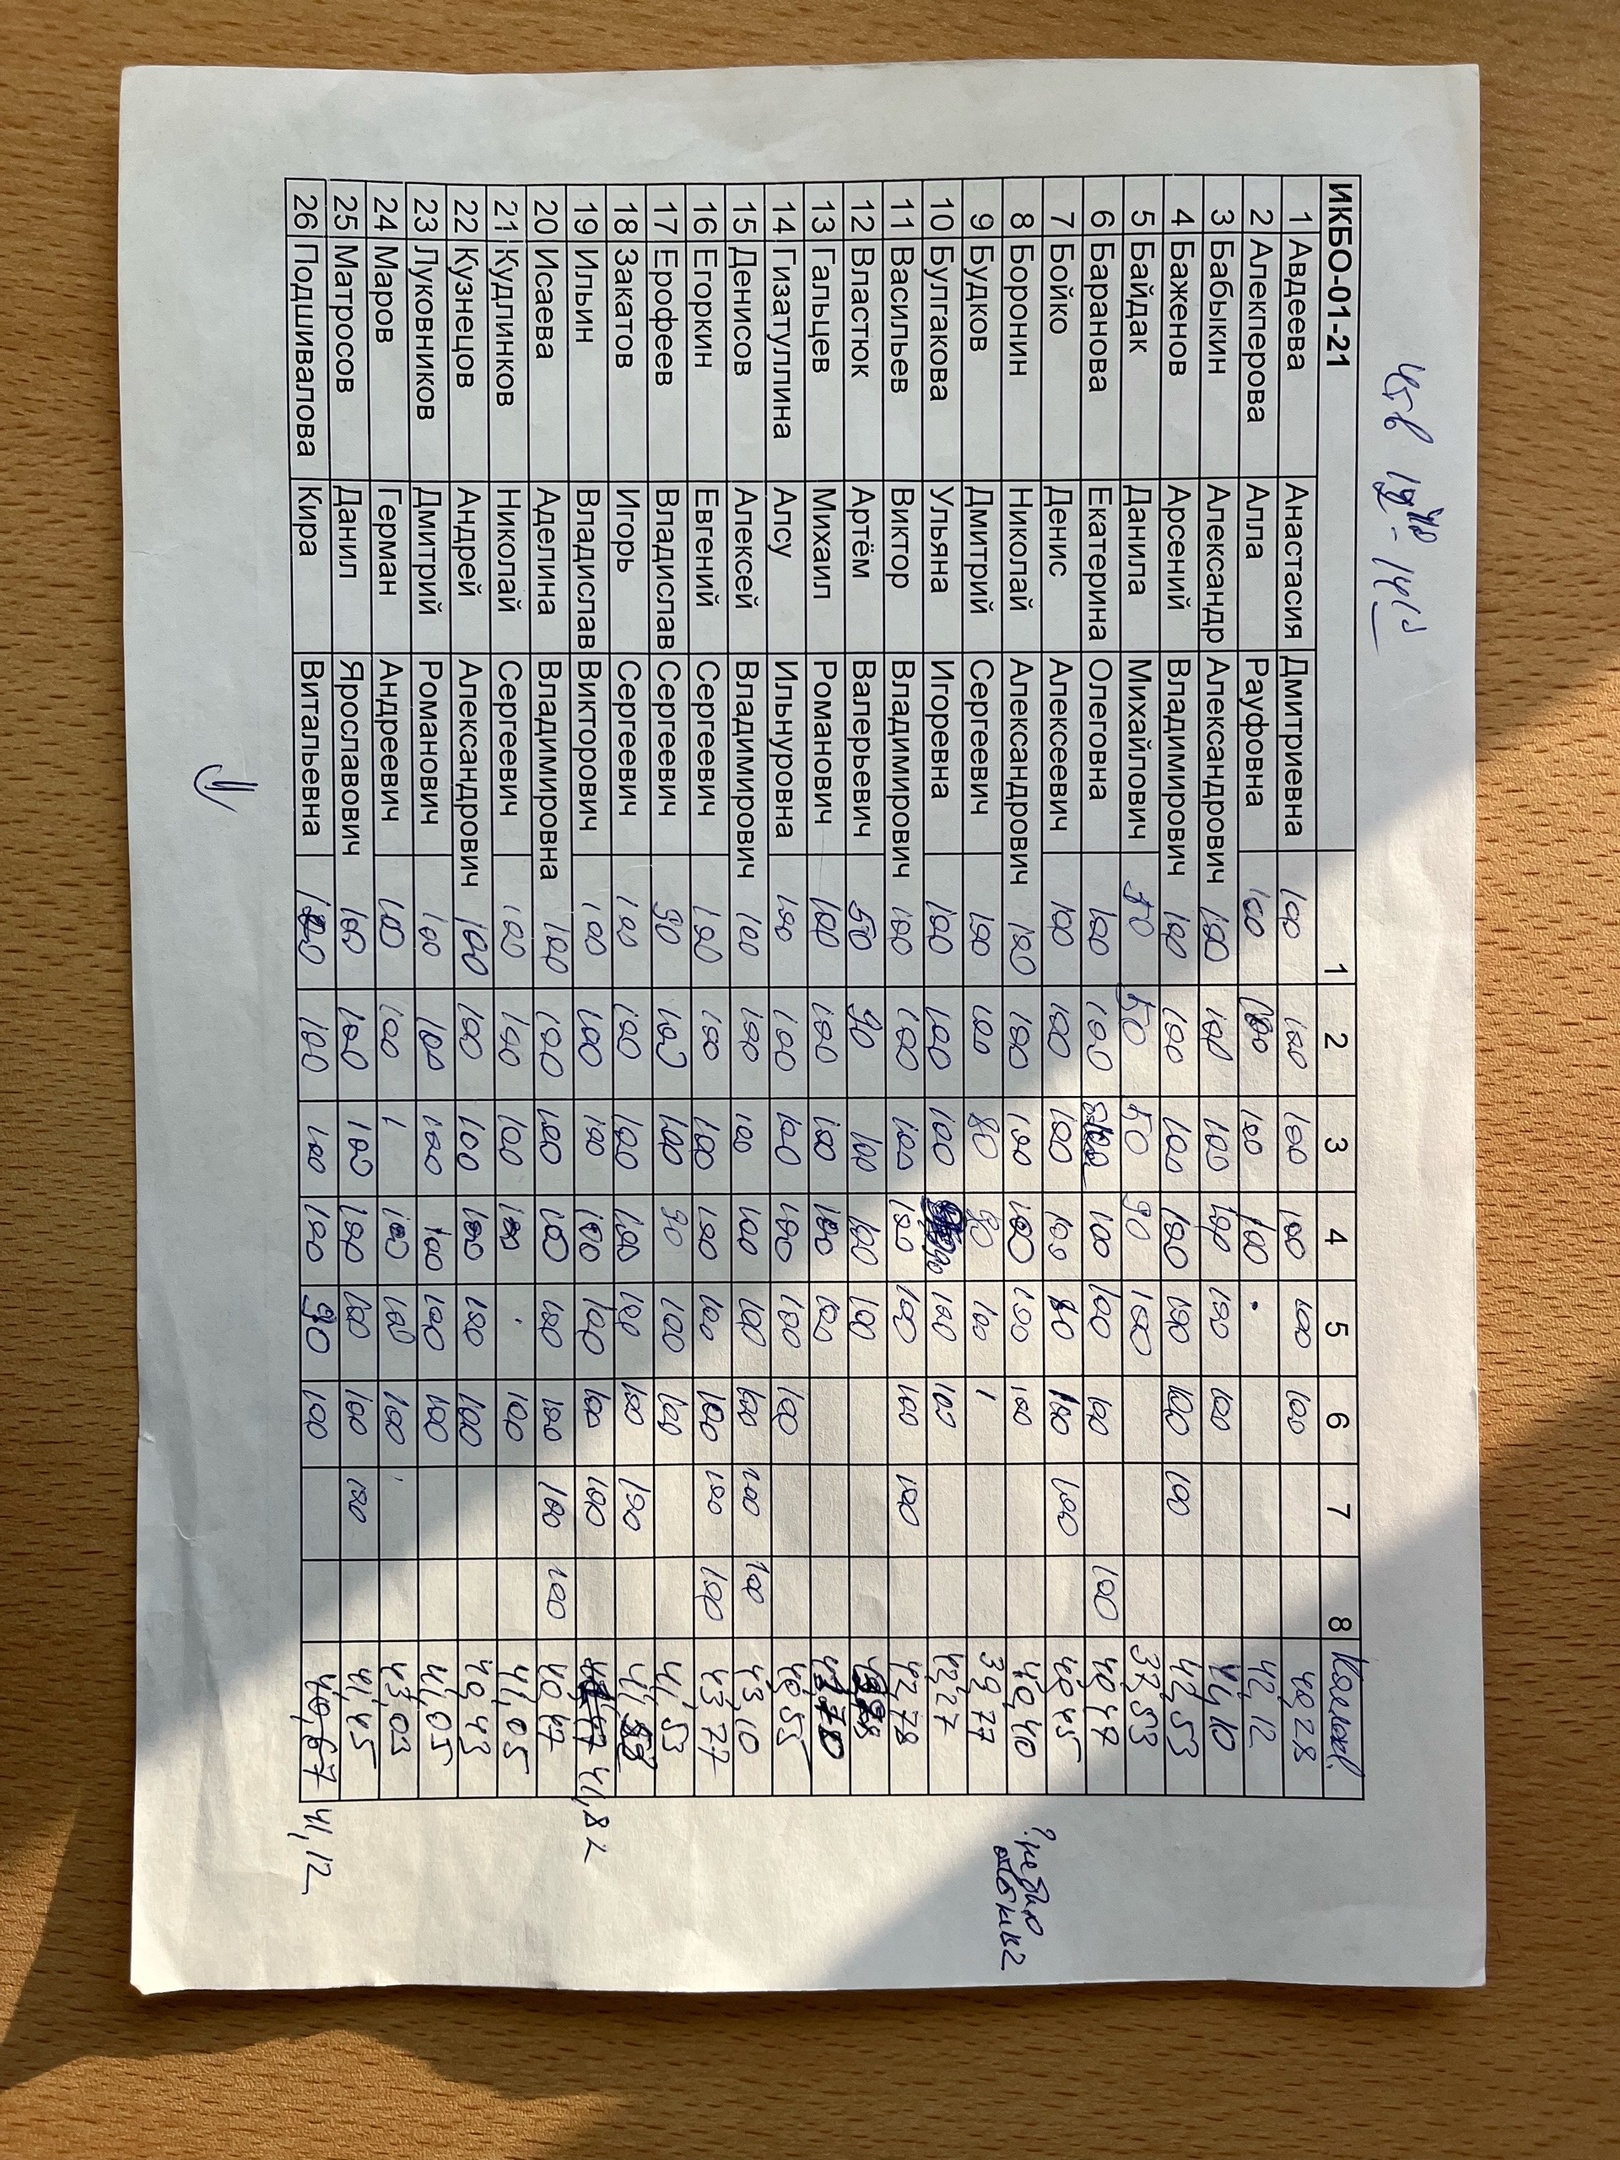 чтв 12 40 - 14 10
ИКБО-01-21 1 2 3 4 5 6 7 8 Коллокв.
1 Авдеева Анастасия Дмитриевна 100 100 100 100 100 100 40,28
2 Алекперова Алла Рауфовна 100 100 100 100 . 42,12
3 Бабыкин Александр Александрович 100 100 100 100 100 100 41,10
4 Баженов Арсений Владимирович 100 100 100 100 100 100 100 42,53
5 Байдак Данила Михайлович 50 50 50 90 100 37,53
6 Баранова Екатерина Олеговна 100 100 100 100 100 100 100 40,47
7 Бойко Денис Алексеевич 100 100 100 100 80 100 100 40,45
8 Боронин Николай Александрович 100 100 100 100 100 100 40,40
? не было
9 Будков Дмитрий Сергеевич 100 100 80 90 100 1 39,77
10 Булгакова Ульяна Игоревна 100 100 100 90 100 100 42,27
11 Васильев Виктор Владимирович 100 100 100 100 100 100 100 42,78
12 Властюк Артём Валерьевич 50 90 100 100 100
13 Гальцев Михаил Романович 100 100 100 100 100
14 Гизатуллина Алсу Ильнуровна 100 100 100 100 100 100 40,55
15 Денисов Алексей Владимирович 100 100 100 100 100 100 100 100 43,10
16 Егоркин Евгений Сергеевич 100 100 100 100 100 100 100 100 43,77
17 Ерофеев Владислав Сергеевич 90 100 100 90 100 100 41,53
18 Закатов Игорь Сергеевич 100 100 100 100 100 100 100
19 Ильин Владислав Викторович 100 100 100 100 100 100 100 41,82
20 Исаева Аделина Владимировна 100 100 100 100 100 100 100 100 40,47
21 Кудлинков Николай Сергеевич 100 100 100 100 . 100 41,05
22 Кузнецов Андрей Александрович 100 100 100 100 100 100 40,43
23 Луковников Дмитрий Романович 100 100 100 100 100 100 41,05
24 Маров Герман Андреевич 100 100 1 100 100 100 43,03
25 Матросов Данил Ярославович 100 100 100 100 100 100 100 41,45
26 Подшивалова Кира Витальевна 100 100 100 100 90 100 40,67 41,12